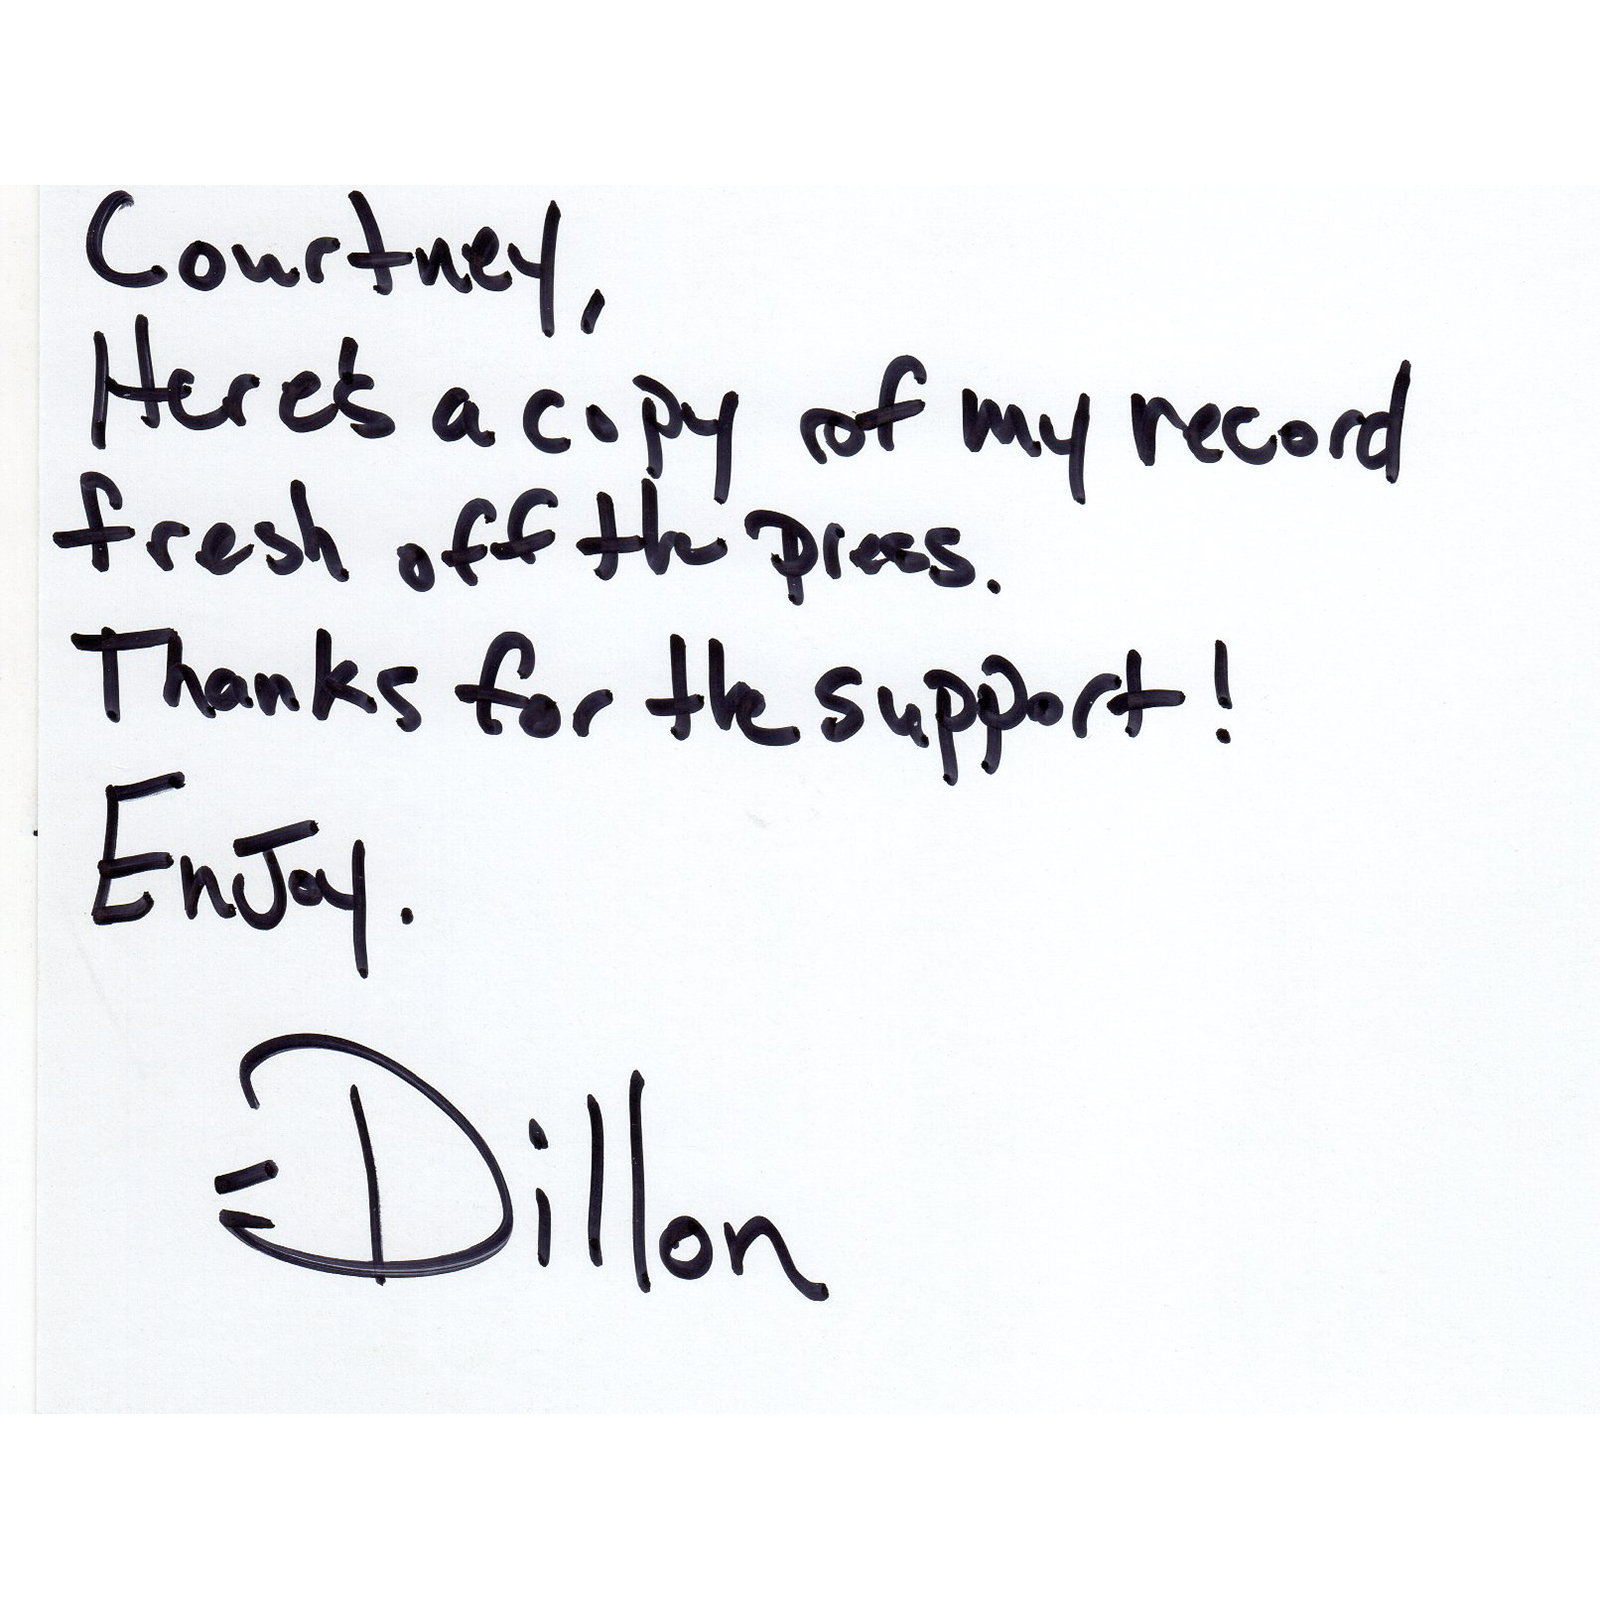 Courtney,
Here's a copy of my record
fresh off the press.
Thanks for the support!
EnJoy.
Dillon